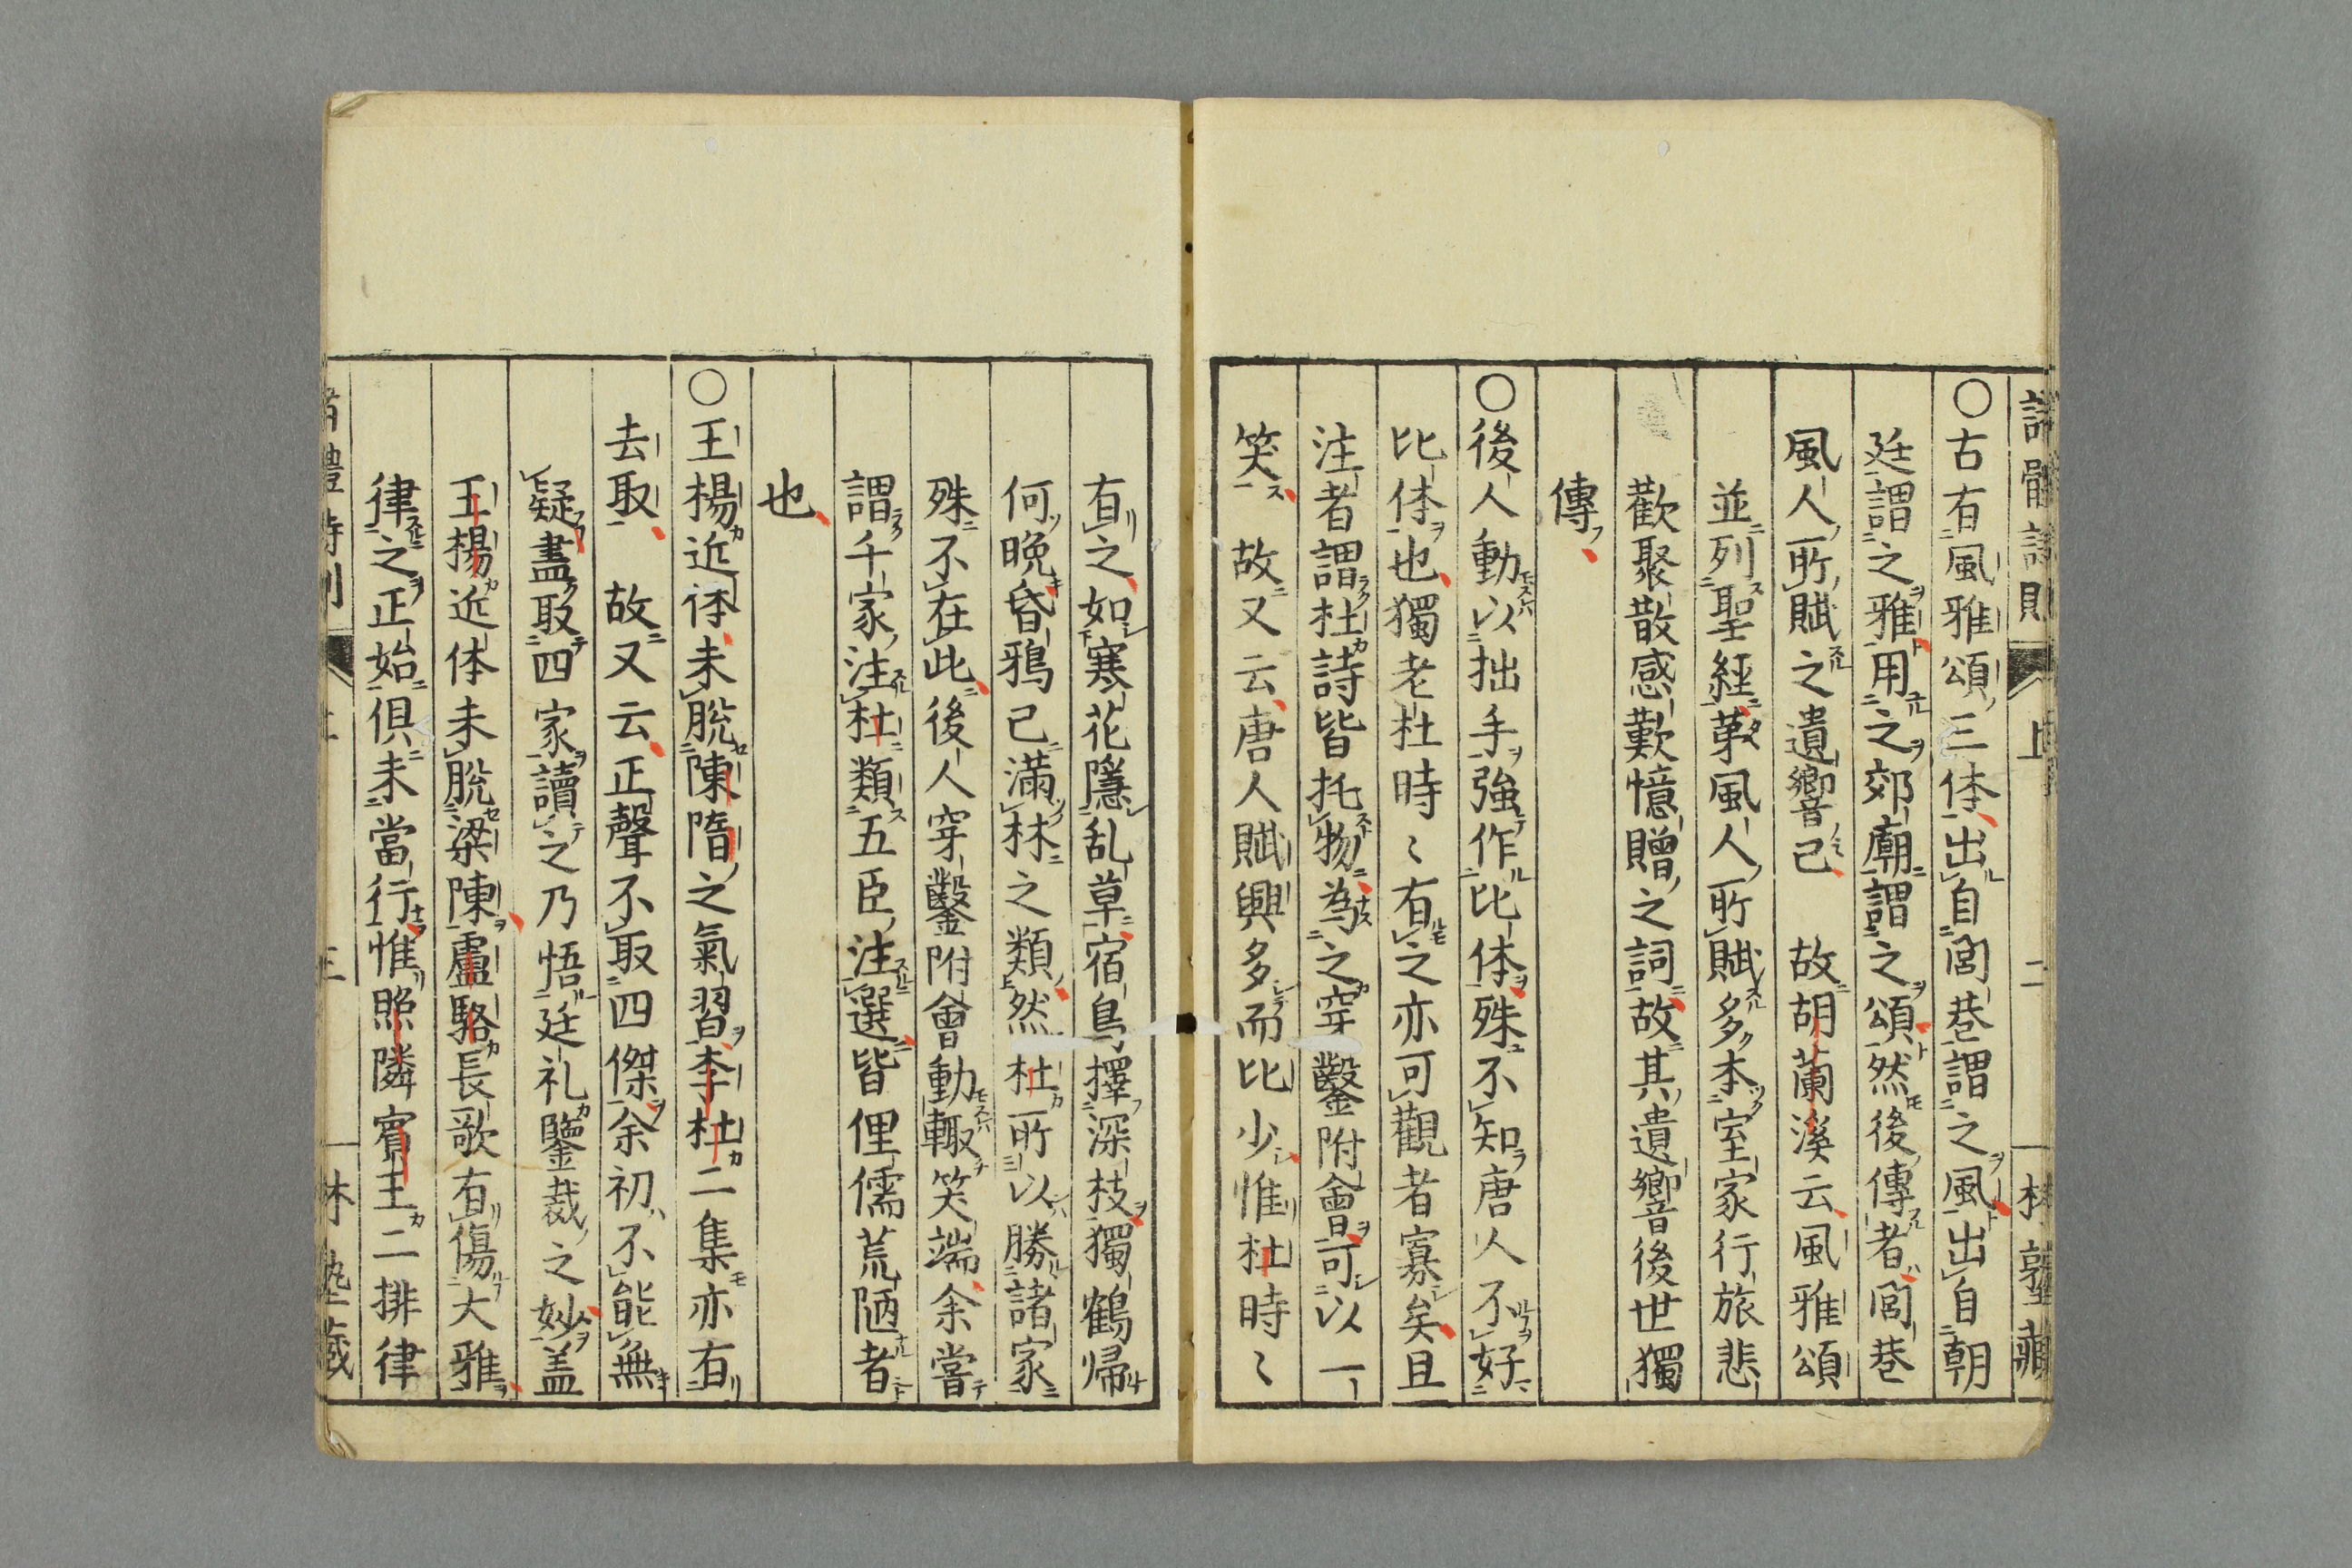 ○古有風雅頌三体出自閭巷謂之風出自朝
廷謂之雅用之郊廟謂之頌然後傳者閭巷
風人所賦之遺響已故胡蘭溪云風雅頌
並列聖經苐風人所賦多本室家行旅悲
歡聚散感歎憶贈之詞故其遺響後世獨
傳
○後人動以拙手強作比体殊不知唐人不好
比体也獨老杜時〻有之亦可觀者寡矣且
注者謂杜詩皆托物為之穿鑿附會可以一
笑故又云唐人賦興多而比少惟杜時〻
有之如寒花隱乱草宿鳥擇深枝獨鶴帰
何晩昏鴉已滿林之類然杜所以勝諸家
殊不在此後人穿鑿附會動輙笑端余嘗
謂千家注杜類五臣注選皆俚儒荒陋者
也
○王楊近体未脫陳隋之氣習李杜二集亦有
去取故又云正聲不取四傑余初不能無
疑盡取四家讀之乃悟廷礼鑒裁之妙盖
王楊近体未脫梁陳盧駱長歌有傷大雅
律之正始俱未當行惟照隣賓王二排律
上
二